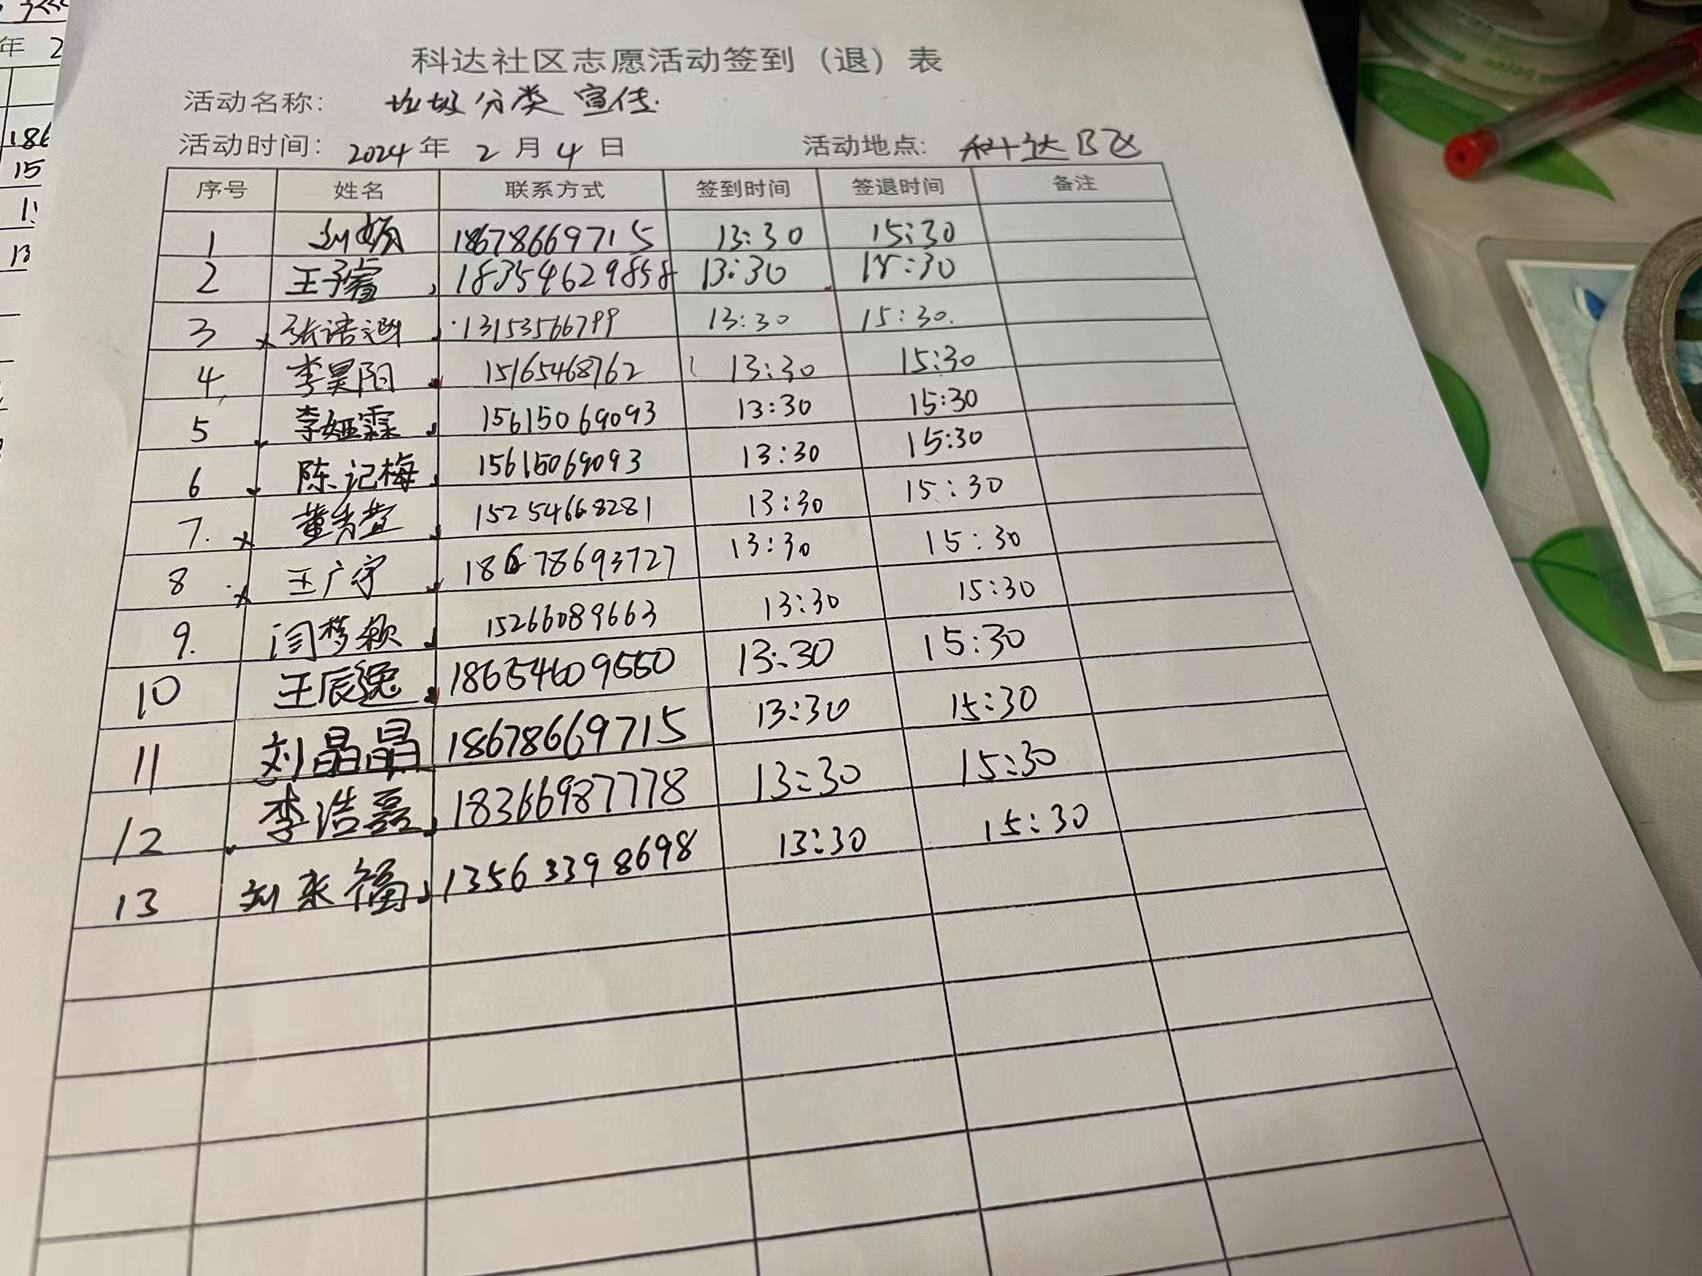 科达社区志愿活动签到（退）表
活动名称： 垃圾分类宣传
活动时间： 2024年 2 月 4 日 活动地点： 科达B区
序号 姓名 联系方式 签到时间 签退时间 备注
1 18678669715 13:30 15:30
2 王子睿 18354629858 13:30 15:30
3 张浩涵 13153566799 13:30 15:30
4 李昊阳 15165468762 13:30 15:30
5 李娅霖 15615069093 13:30 15:30
6 陈记梅 15615069093 13:30 15:30
7 15254668281 13:30 15:30
8 王广宇 18678693727 13:30 15:30
9 闫梦颖 15266089663 13:30 15:30
10 王辰逸 18654609550 13:30 15:30
11 刘晶晶 18678669715 13:30 15:30
12 李浩磊 18366987778 13:30 15:30
13 刘来福 13563398698 13:30 15:30